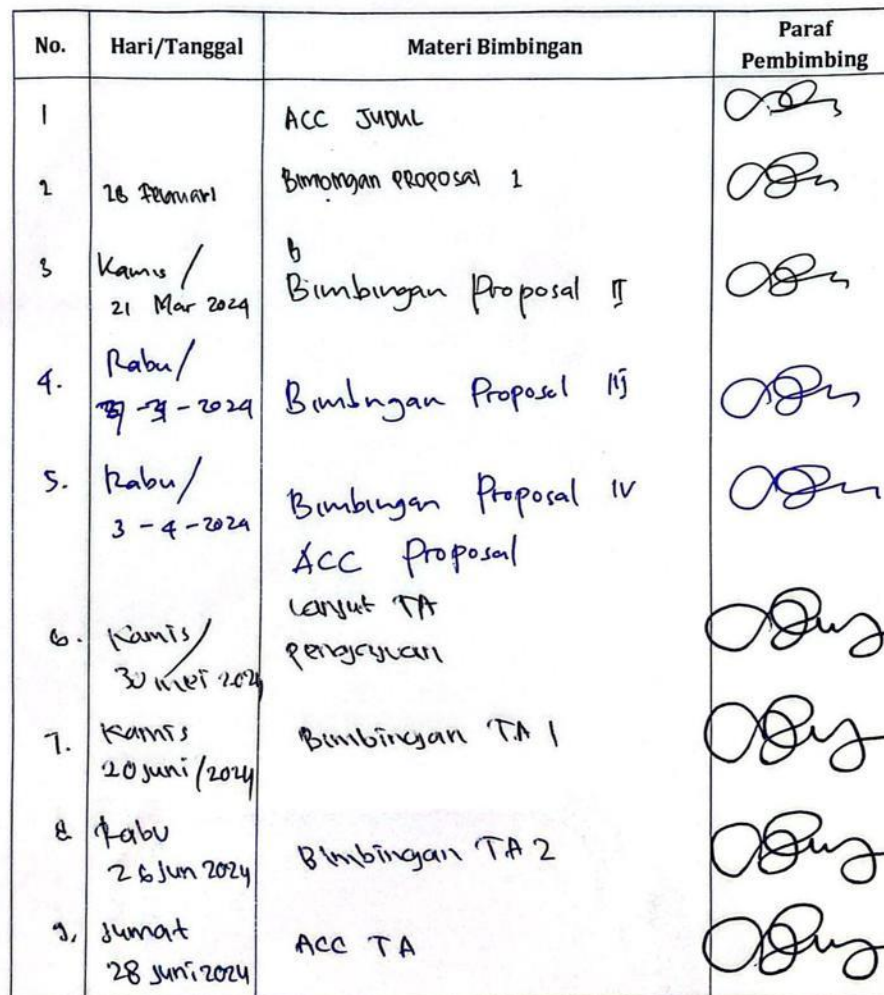 No. Hari/Tanggal Materi Bimbingan Paraf Pembimbing
1 ACC JUDUL
2 28 Februari Bimbingan PROPOSAL 1
3 Kamis / B
21 Mar 2024 Bimbingan Proposal II
4. Rabu/
-2024 Bimbingan Proposal III
5. Rabu/
3-4-2024 Bimbingan Proposal IV
ACC Proposal
Lanjut TA
6. Kamis/ pengajuan
30 mei 2024
7. Kamis Bimbingan TA 1
20 Juni/2024
8 Rabu
26 Jun 2024 Bimbingan TA 2
9. Jumat ACC TA
28 Juni 2024